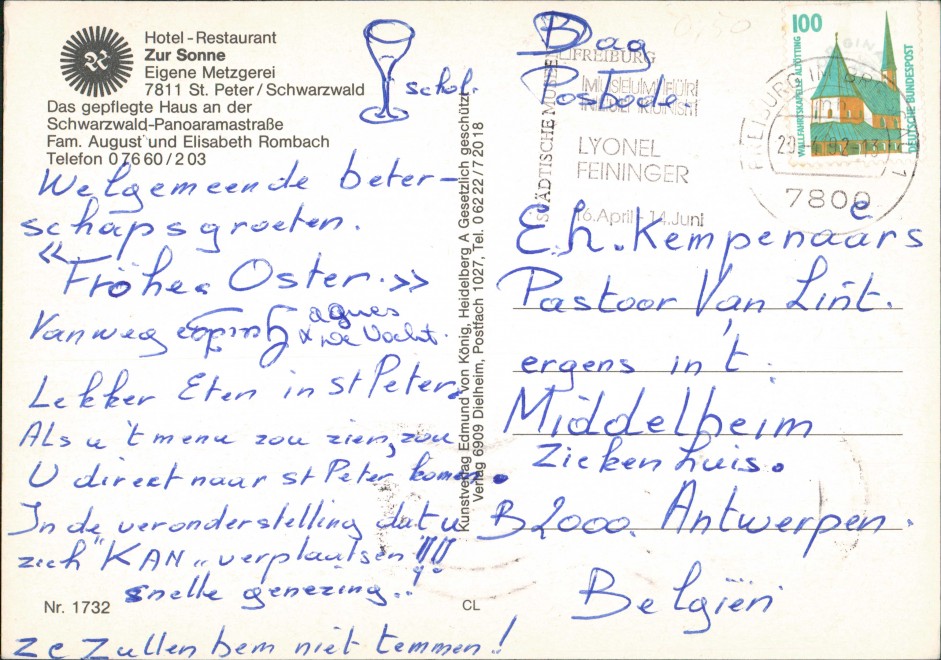 Hotel-Restaurant
Zur Sonne
Eigene Metzgerei
7811 St. Peter/Schwarzwald
Das gepflegte Haus an der
Schwarzwald-Panoaramastraße
Fam. August und Elisabeth Rombach
Telefon 0 76 60 / 2 03
schol.
Welgemeende beter-
schapsgroeten.
"Fröhe Oster.>>
Vanweg
agnes
& De Vocht.
Lekker Eten in St Peter.
Als u 't menu zou zien, zou
U direkt naar St Peter komen.
In de veronderstelling dat u
zich "KAN" verplaatsen!!!!
snelle genezing..
Nr. 1732
CL
Ze zullen hem niet temmen!
Kunstverlag Edmund von König, Heidelberg A Gesetzlich geschützt
Verlag 6909 Dielheim, Postfach 1027, Tel. 0 62 22 / 7 20 18
Dag
Postbode.
FREIBURG
STÄDTISCHE MUSEEN
MUSEUM FÜR
NEUE KUNST
LYONEL
FEININGER
16. April - 14. Juni
7800
1
100
WALLFAHRTSKAPELLE ALTÖTTING
DEUTSCHE BUNDESPOST
0,50
E.h. Kempenaers
Pastoor Van Lint.
ergens in 't
Middelheim
Ziekenhuis.
B2000. Antwerpen.
Belgïen